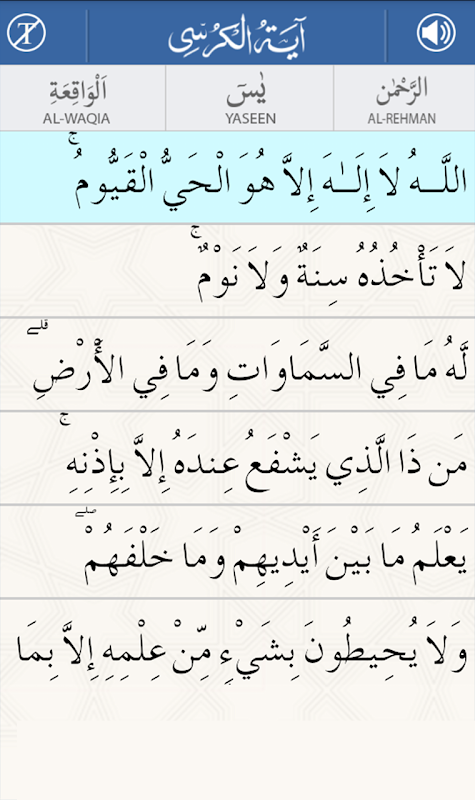 آيَةُ الْكُرْسِي
اَلْوَاقِعَةِ
AL-WAQIA
يٰسٓ
YASEEN
الرَّحْمٰن
AL-REHMAN
اللَّـهُ لَا إِلَـٰهَ إِلاَّ هُوَ الْحَيُّ الْقَيُّومُ ۚ
لاَ تَأْخُذُهُ سِنَةٌ وَلاَ نَوْمٌ ۚ
لَّهُ مَا فِي السَّمَاوَاتِ وَمَا فِي الأَرْضِ ۗ
مَن ذَا الَّذِي يَشْفَعُ عِندَهُ إِلاَّ بِإِذْنِهِ ۚ
يَعْلَمُ مَا بَيْنَ أَيْدِيهِمْ وَمَا خَلْفَهُمْ ۖ
وَلاَ يُحِيطُونَ بِشَيْءٍ مِّنْ عِلْمِهِ إِلاَّ بِمَا